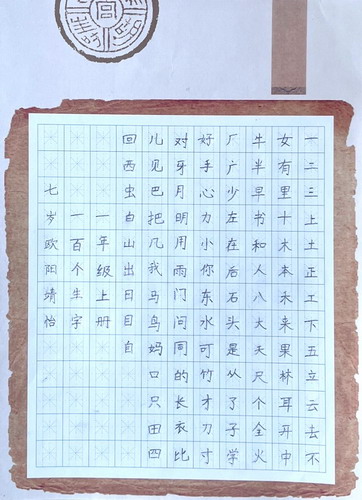 一二三上土正工下五立云去不
女有里十木本禾来果林耳开中
牛半早书和人八大天尺个全火
厂广少左在后石头是从了子学
好手心力小你东水可竹才刀寸
对牙月明用雨门问同的长衣比
儿见巴把几我马鸟妈口只田四
回西虫白山出日目自
一年级上册
一百个生字
七岁欧阳靖怡